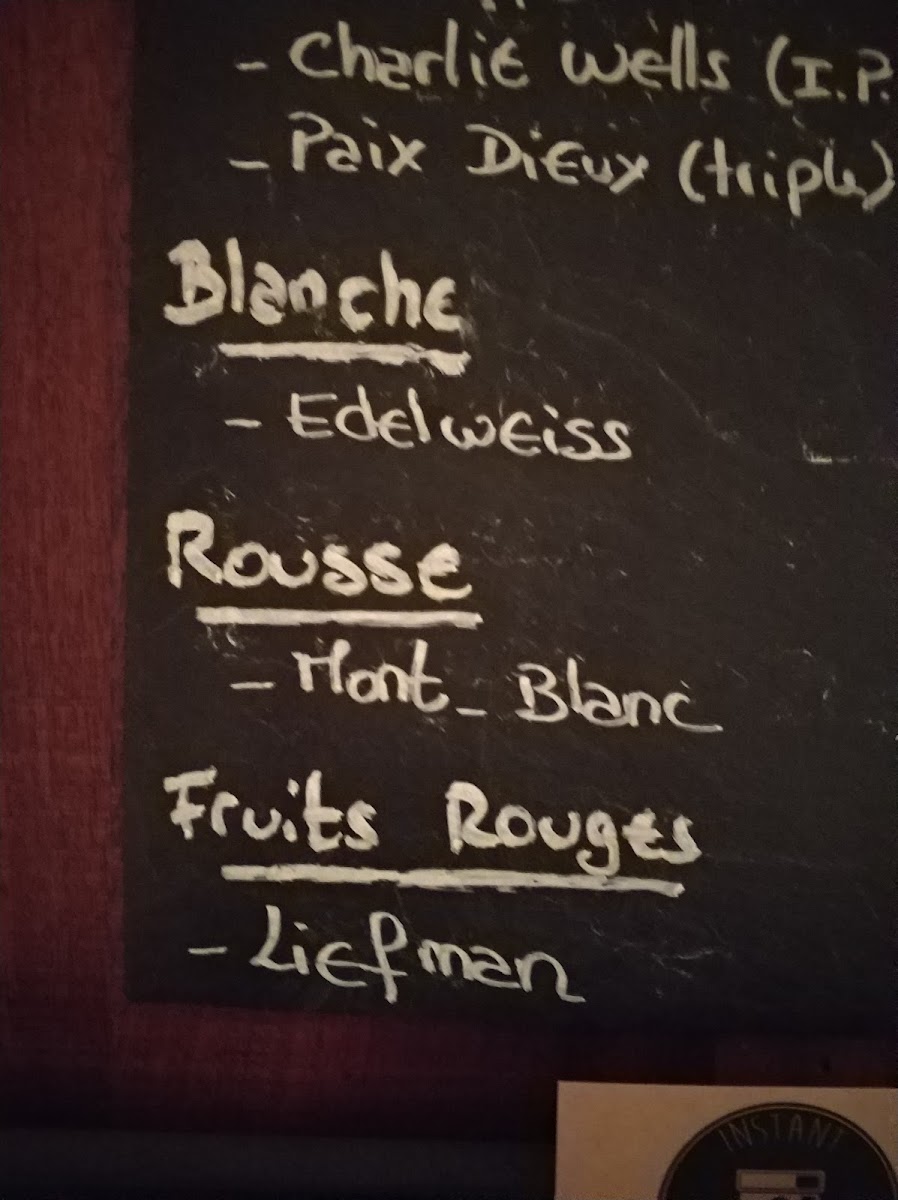 - Charlie Wells (I.P.
- Paix Dieux (triple)
Blanche
- Edelweiss
Rousse
- Mont-Blanc
Fruits Rouges
- Liefman
INSTANT